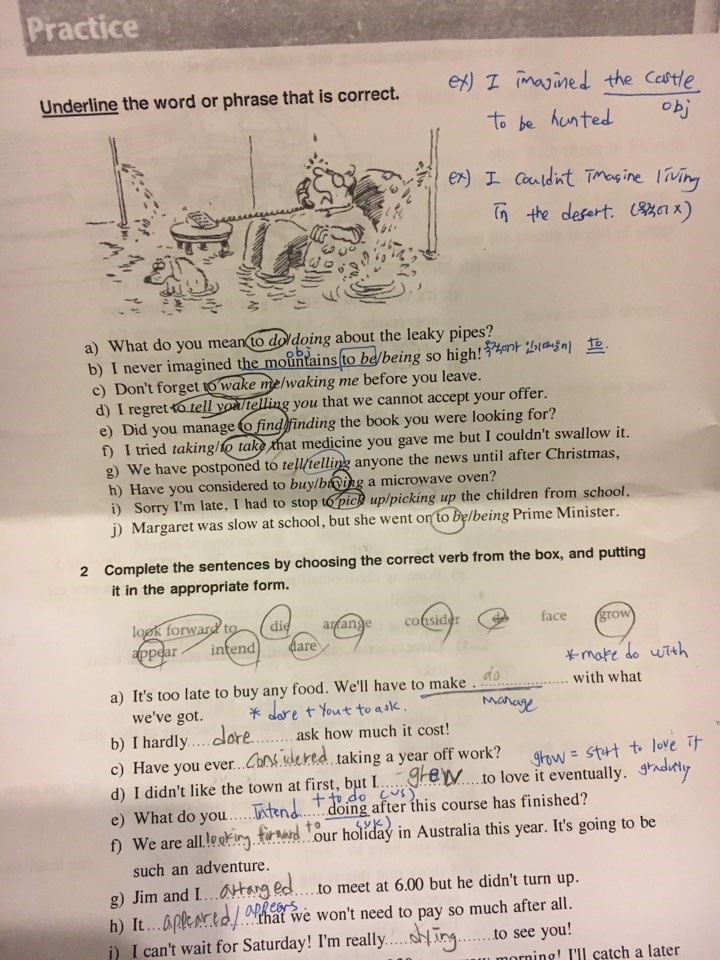 Practice
Underline the word or phrase that is correct.
ex) I imagined the castle
obj
to be hunted
ex) I couldn't imagine living
in the desert. (목적어 x)
a) What do you mean to do/doing about the leaky pipes?
obj
b) I never imagined the mountains to be/being so high! 목적어가 있기때문에 to.
c) Don't forget to wake me/waking me before you leave.
d) I regret to tell you/telling you that we cannot accept your offer.
e) Did you manage to find/finding the book you were looking for?
f) I tried taking/to take that medicine you gave me but I couldn't swallow it.
g) We have postponed to tell/telling anyone the news until after Christmas,
h) Have you considered to buy/buying a microwave oven?
i) Sorry I'm late, I had to stop to pick up/picking up the children from school.
j) Margaret was slow at school, but she went on to be/being Prime Minister.
2 Complete the sentences by choosing the correct verb from the box, and putting
it in the appropriate form.
look forward to die arrange consider do face grow
appear intend dare
*make do with
a) It's too late to buy any food. We'll have to make ..do.. with what
manage
we've got. * dare + You + to ask.
b) I hardly.....dare.....ask how much it cost!
c) Have you ever...considered...taking a year off work? grow = start to love it
gradually
d) I didn't like the town at first, but I....grew....to love it eventually.
+ to do (us)
e) What do you.....intend.....doing after this course has finished?
(UK)
f) We are all looking forward to our holiday in Australia this year. It's going to be
such an adventure.
g) Jim and I....arranged....to meet at 6.00 but he didn't turn up.
h) It....appeared/appears...that we won't need to pay so much after all.
i) I can't wait for Saturday! I'm really.....dying.......to see you!
morning! I'll catch a later